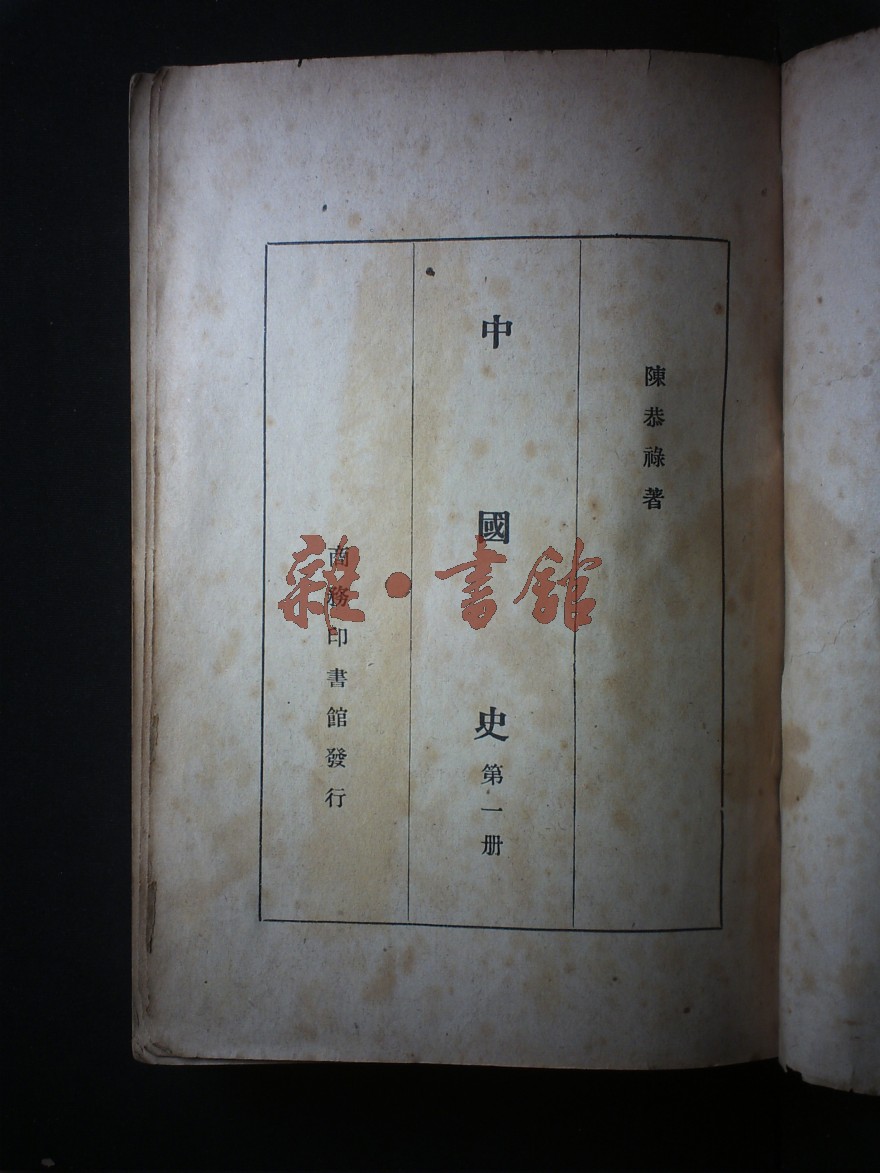 陳恭祿著
中國史第一册
商務印書館發行
雜·書館